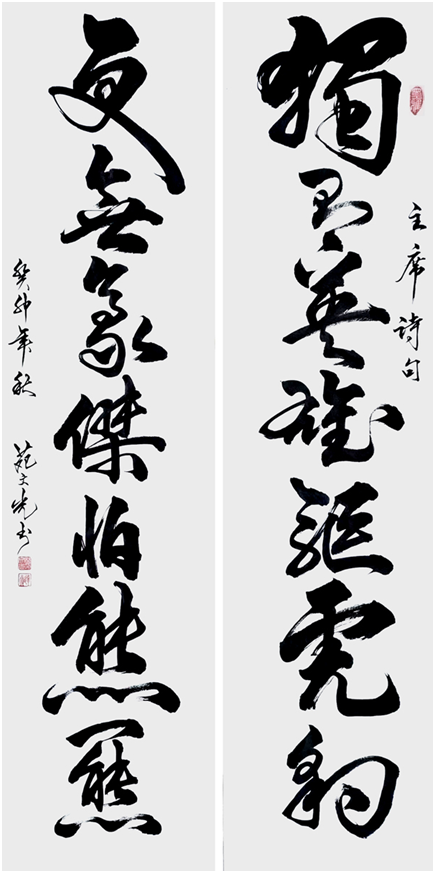 獨有英雄驅虎豹
主席詩句
更無豪傑怕熊羆
癸卯年秋 范文光书